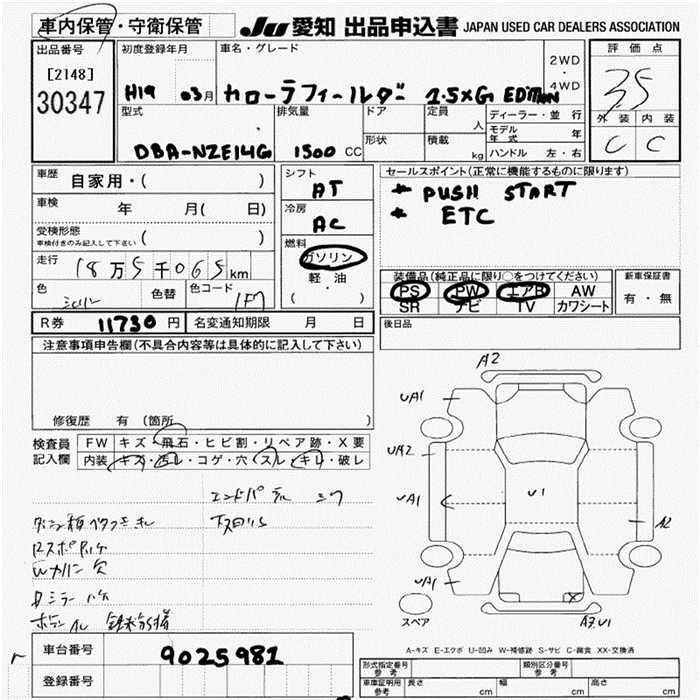 車内保管・守衛保管 JU 愛知 出品申込書 JAPAN USED CAR DEALERS ASSOCIATION
出品番号 初度登録年月 車名・グレード 2WD・4WD 評価点
[2148]
30347 H19 03月 カローラフィールダー 1.5×G EDITION 35
外装 内装
C C
型式 排気量 ドア 定員 人 ディーラー・並行
形状 積載 kg モデル年式 年
DBA-NZE14G 1500 CC ハンドル 左・右
車歴 自家用・( ) シフト AT セールスポイント(正常に機能するものに限ります)
* PUSH START
* ETC
車検 年 月( 日) 冷房 AC
受検形態 ( )
車検付きのみ記入して下さい
燃料 ガソリン 軽・油 ( ・ )
走行 18万5千065km
色 色替 色コード 1F7
装備品(純正品に限り○をつけてください) 新車保証書
PS PW エアB AW 有・無
SR ナビ TV カワシート
R券 11730円 名変通知期限 月 日 後日品
注意事項申告欄(不具合内容等は具体的に記入して下さい)
修復歴 有 (箇所 )
検査員記入欄 FW キズ・飛石・ヒビ割・リペア跡・X要
内装 キズ・汚レ・コゲ・穴・スレ・キレ・破レ
A2
UA1
UA2
UA1 U1 A2
UA1
スペア
A7.U1
A-キズ E-エクボ U-凹み W-補修跡 S-サビ C-腐食 XX-交換済
車台番号 9025981
登録番号
形式指定番号 参考 類別区分番号 参考
車庫証明用 参考 長さ cm 幅 cm 高さ cm